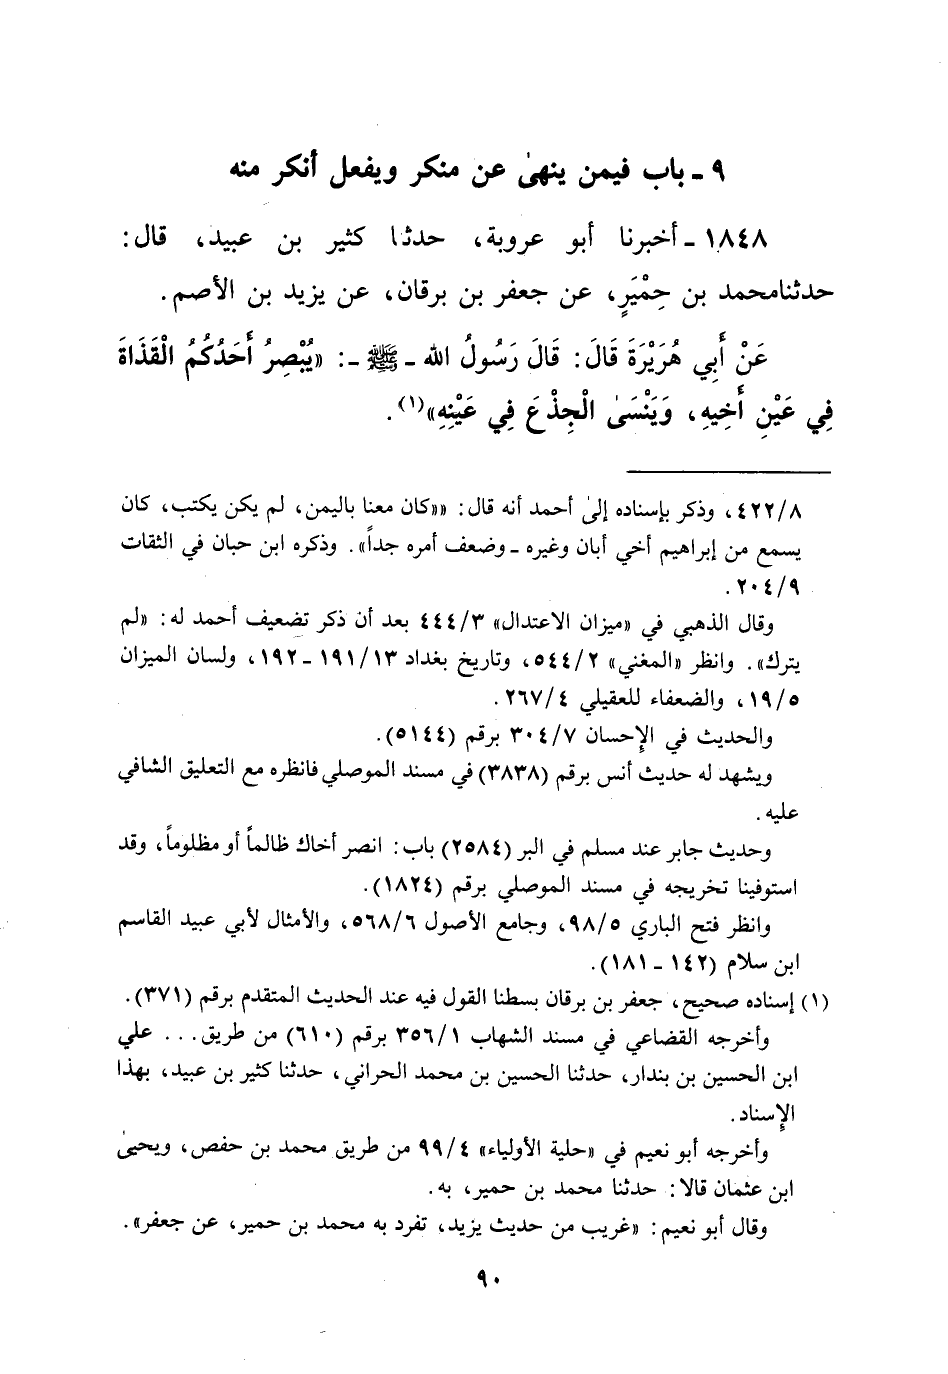 ٩ ـ باب فيمن ينهىٰ عن منكر ويفعل أنكر منه
١٨٤٨ ـ أخبرنا أبو عروبة، حدثنا كثير بن عبيد، قال:
حدثنامحمد بن حِمْيَرٍ، عن جعفر بن برقان، عن يزيد بن الأصم.
عَنْ أَبِي هُرَيْرَةَ قَالَ: قَالَ رَسُولُ الله ـ ﷺ ـ: «يُبْصِرُ أَحَدُكُمُ الْقَذَاةَ
فِي عَيْنِ أَخِيهِ، وَيَنْسَىٰ الْجِذْعَ فِي عَيْنِهِ»(١).
٤٢٢/٨، وذكر بإسناده إلىٰ أحمد أنه قال: ««كان معنا باليمن، لم يكن يكتب، كان
يسمع من إبراهيم أخي أبان وغيره ـ وضعف أمره جداً». وذكره ابن حبان في الثقات
٢٠٤/٩.
وقال الذهبي في «ميزان الاعتدال» ٤٤٤/٣ بعد أن ذكر تضعيف أحمد له: «لم
يترك». وانظر «المغني» ٥٤٤/٢، وتاريخ بغداد ١٩١/١٣ ـ ١٩٢، ولسان الميزان
١٩/٥، والضعفاء للعقيلي ٢٦٧/٤.
والحديث في الإحسان ٣٠٤/٧ برقم (٥١٤٤).
ويشهد له حديث أنس برقم (٣٨٣٨) في مسند الموصلي فانظره مع التعليق الشافي
عليه.
وحديث جابر عند مسلم في البر (٢٥٨٤) باب: انصر أخاك ظالماً أو مظلوماً، وقد
استوفينا تخريجه في مسند الموصلي برقم (١٨٢٤).
وانظر فتح الباري ٩٨/٥، وجامع الأصول ٥٦٨/٦، والأمثال لأبي عبيد القاسم
ابن سلام (١٤٢ ـ ١٨١).
(١) إسناده صحيح، جعفر بن برقان بسطنا القول فيه عند الحديث المتقدم برقم (٣٧١).
وأخرجه القضاعي في مسند الشهاب ٣٥٦/١ برقم (٦١٠) من طريق... علي
ابن الحسين بن بندار، حدثنا الحسين بن محمد الحراني، حدثنا كثير بن عبيد، بهذا
الإسناد.
وأخرجه أبو نعيم في «حلية الأولياء» ٩٩/٤ من طريق محمد بن حفص، ويحيىٰ
ابن عثمان قالا: حدثنا محمد بن حمير، به.
وقال أبو نعيم: «غريب من حديث يزيد، تفرد به محمد بن حمير، عن جعفر».
٩٠